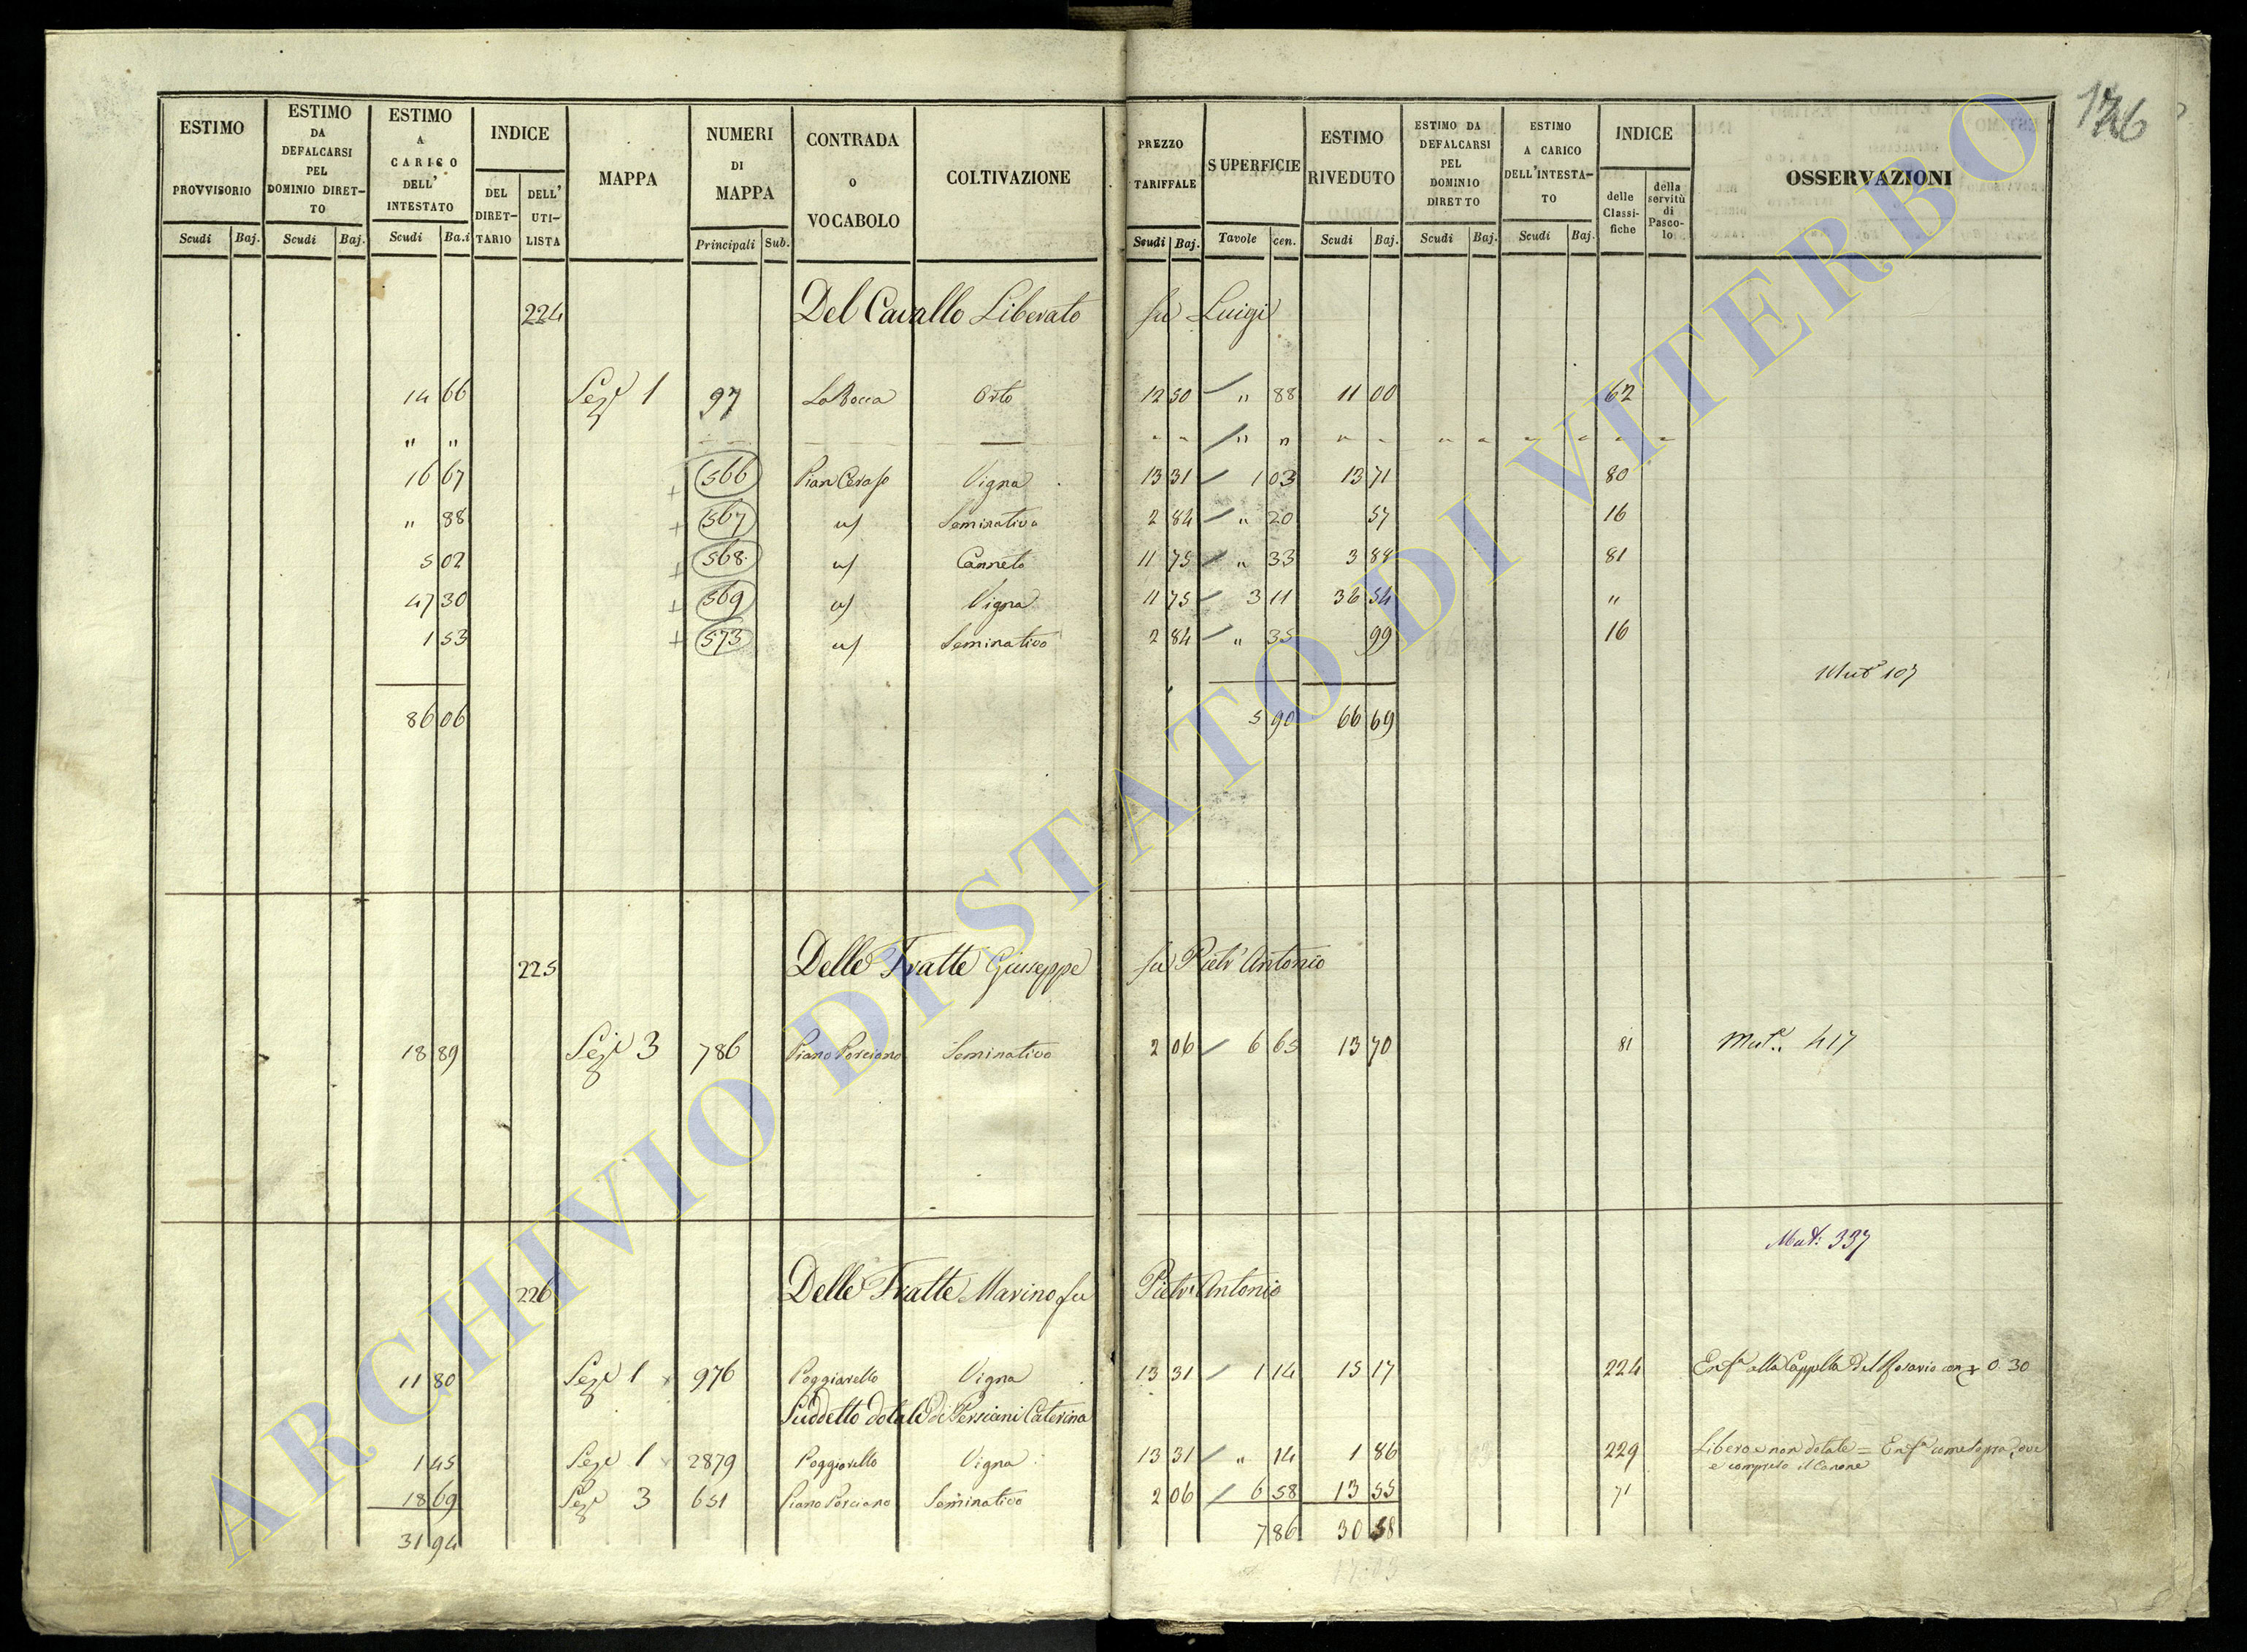 176
ESTIMO PROVVISORIO
ESTIMO DA DEFALCARSI PEL DOMINIO DIRET-TO
ESTIMO A CARICO DELL' INTESTATO
INDICE
DEL DIRET-TARIO
DELL' UTI-LISTA
MAPPA
NUMERI DI MAPPA
CONTRADA O VOCABOLO
COLTIVAZIONE
PREZZO TARIFFALE
SUPERFICIE
ESTIMO RIVEDUTO
ESTIMO DA DEFALCARSI PEL DOMINIO DIRETTO
ESTIMO A CARICO DELL'INTESTA-TO
INDICE
delle Classi-fiche
della servitù di Pasco-lo
OSSERVAZIONI
Scudi Baj. Scudi Baj. Scudi Ba.i Principali Sub. Scudi Baj. Tavole cen. Scudi Baj. Scudi Baj. Scudi Baj.
224 Del Cavallo Liberato fu Luigi
14 66 Sez.e 1 97 La Rocca Orto 12 50 " 88 11 00 62
" " — — — — " " " " " "
16 67 566 Pian Ceraso Vigna 13 31 1 03 13 71 80
" 88 567 Seminativo 2 84 " 20 57 16
5 02 568 Canneto 11 75 " 33 3 88 81
47 30 569 Vigna 11 75 3 11 36 54 "
1 53 573 Seminativo 2 84 " 35 99 16
Mut.e 107
86 06 5 90 66 69
225 Delle Fratte Giuseppe fu Pietr'Antonio
18 89 Sez.e 3 786 Piano Porciano Seminativo 2 06 6 65 13 70 81 Mut.e 417
Mut: 337
226 Delle Fratte Marino fu Pietr'Antonio
11 80 Sez.e 1 976 Poggiarello Vigna 13 31 1 14 15 17 224 Enf.a alla Cappella del Rosario con 0 30
Suddetto dotale di Persiani Caterina
1 45 Sez.e 1 2879 Poggiarello Vigna 13 31 " 14 1 86 229 Libero e non dotale = Enf.a come sopra, ove
e compreso il Canone
18 69 Sez.e 3 651 Piano Porciano Seminativo 2 06 6 58 13 55 71
31 94 7 86 30 58
ARCHIVIO DI STATO DI VITERBO